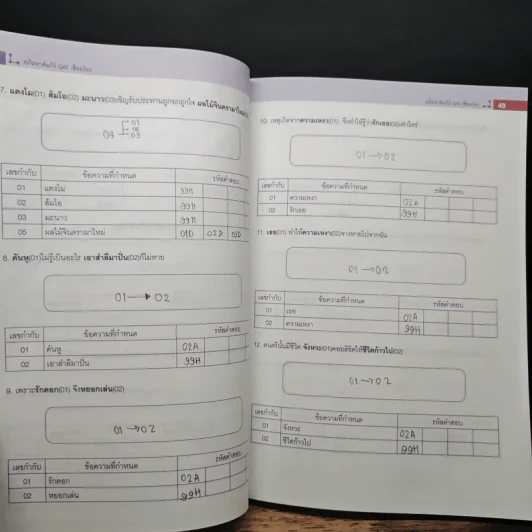 7. แตงโม(01) ส้มโอ(02) มะนาว(03)เชิญรับประทานถูกอกถูกใจ ผลไม้จินตรามาใหม่
04
01
02
03
เลขกำกับ ข้อความที่กำหนด รหัสคำตอบ
01 แตงโม 99H
02 ส้มโอ 99H
03 มะนาว 99H
05 ผลไม้จินตรามาใหม่ 01D 02D 03D
8. คันหู(01)ไม่รู้เป็นอะไร เอาสำลีมาปั่น(02)ก็ไม่หาย
01 → 02
เลขกำกับ ข้อความที่กำหนด รหัสคำตอบ
01 คันหู 02A
02 เอาสำลีมาปั่น 99H
9. เพราะรักดอก(01) จึงหยอกเล่น(02)
01 → 02
เลขกำกับ ข้อความที่กำหนด รหัสคำตอบ
01 รักดอก 02A
02 หยอกเล่น 99H
49
10. เหตุเกิดจากความเหงา(01) จึงทำให้รู้ว่ารักเธอ(02)เท่าไหร่
01 → 02
เลขกำกับ ข้อความที่กำหนด รหัสคำตอบ
01 ความเหงา 02A
02 รักเธอ 99H
11. เธอ(01) ทำให้ความเหงา(02)จางหายไปจากฉัน
01 → 02
เลขกำกับ ข้อความที่กำหนด รหัสคำตอบ
01 เธอ 02A
02 ความเหงา 99H
12. คนตรีนั้นมีชีวิต จังหวะ(01)คอยลิขิตให้ชีวิตก้าวไป(02)
01 → 02
เลขกำกับ ข้อความที่กำหนด รหัสคำตอบ
01 จังหวะ 02A
02 ชีวิตก้าวไป 99H